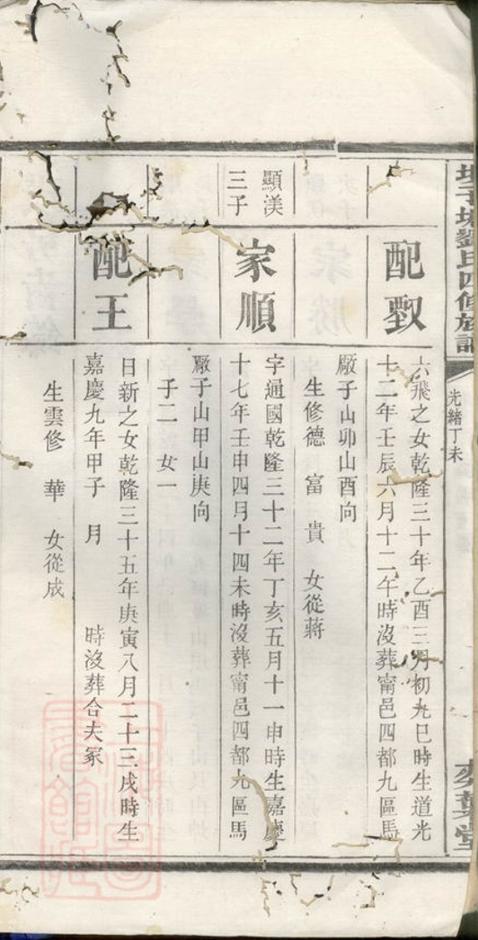 劉氏四修族譜
光緒丁未
配
六飛之女乾隆三十年乙酉三月初九巳時生道光
十二年壬辰六月十二午時沒葬甯邑四都九區馬
厰子山卯山酉向
生修德 富 貴 女從蔣
顯渼
三子
家順
字通國乾隆三十二年丁亥五月十一申時生嘉慶
十七年壬申四月十四未時沒葬甯邑四都九區馬
厰子山甲山庚向
子二 女一
配王
日新之女乾隆三十五年庚寅八月二十三戌時生
嘉慶九年甲子 月 時沒葬合夫冢
生雲修 華 女從成